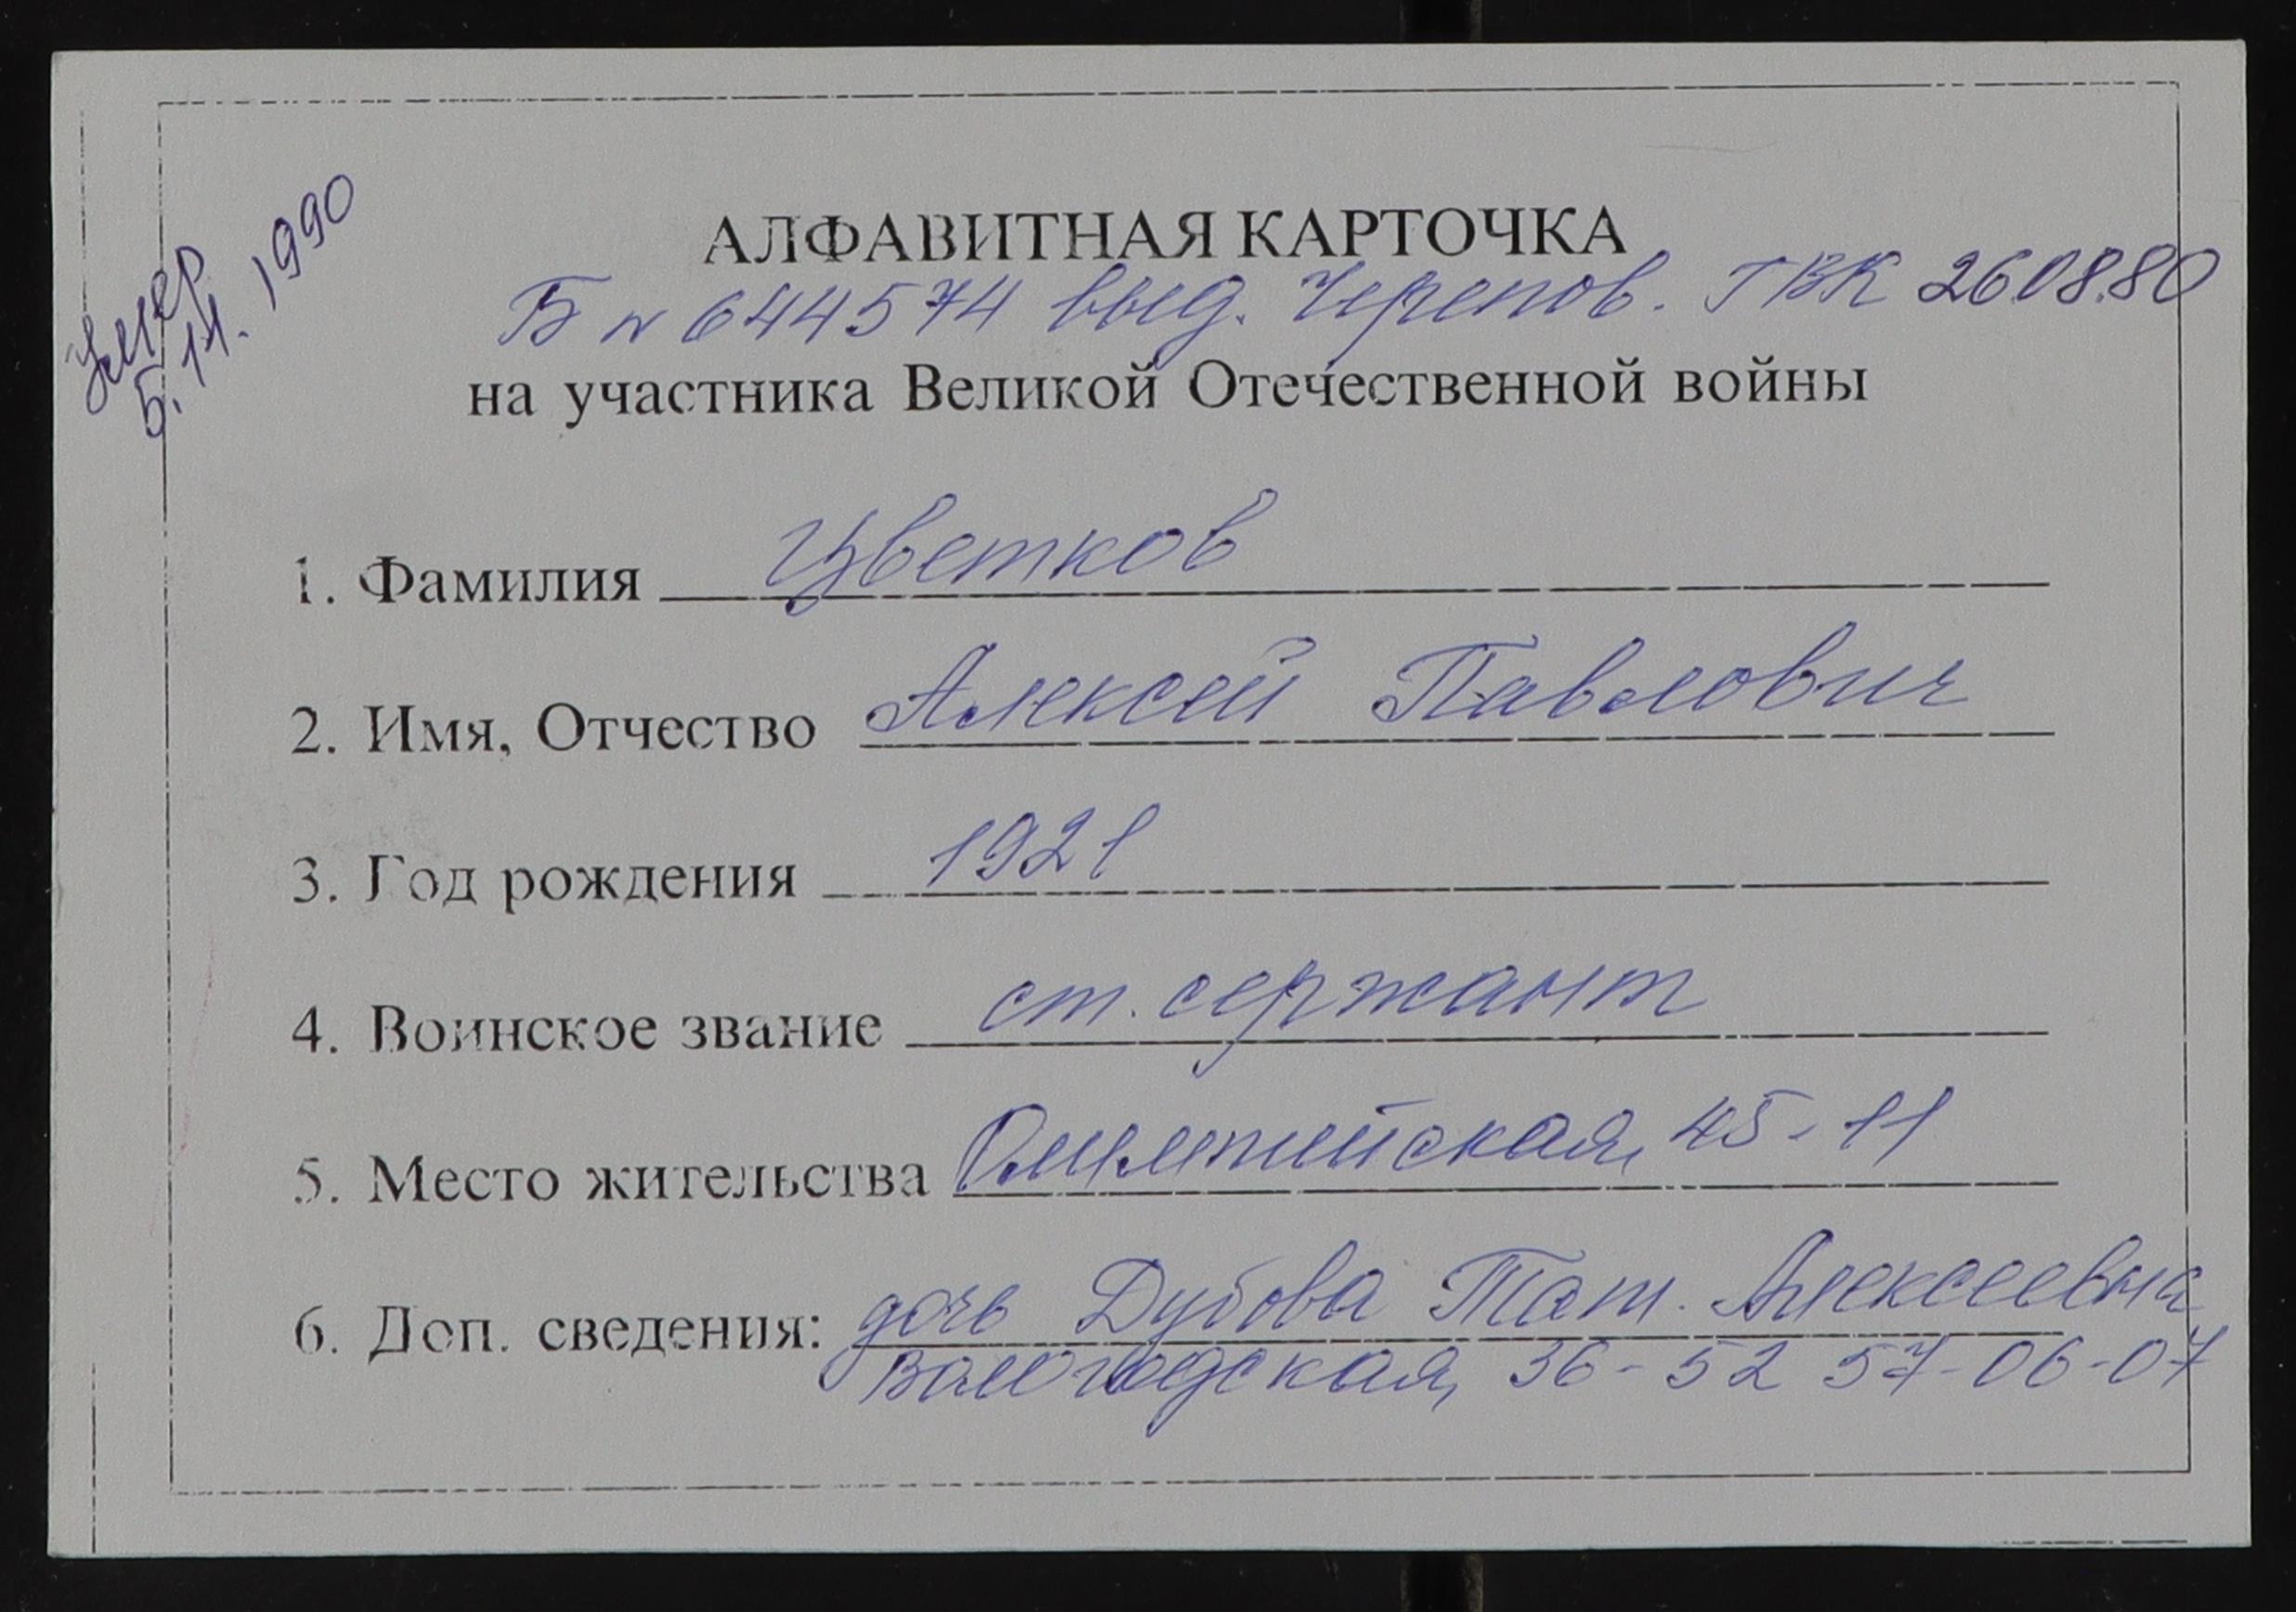 Умер
5.11.1990
АЛФАВИТНАЯ КАРТОЧКА
Б № 644574 выд. Черепов. ГВК 26.08.80
на участника Великой Отечественной войны
1. Фамилия Цветков
2. Имя, Отчество Алексей Павлович
3. Год рождения 1921
4. Воинское звание ст. сержант
5. Место жительства Олимпийская, 45-11
6. Доп. сведения: дочь Дубова Тат. Алексеевна
Вологодская, 36-52 57-06-07